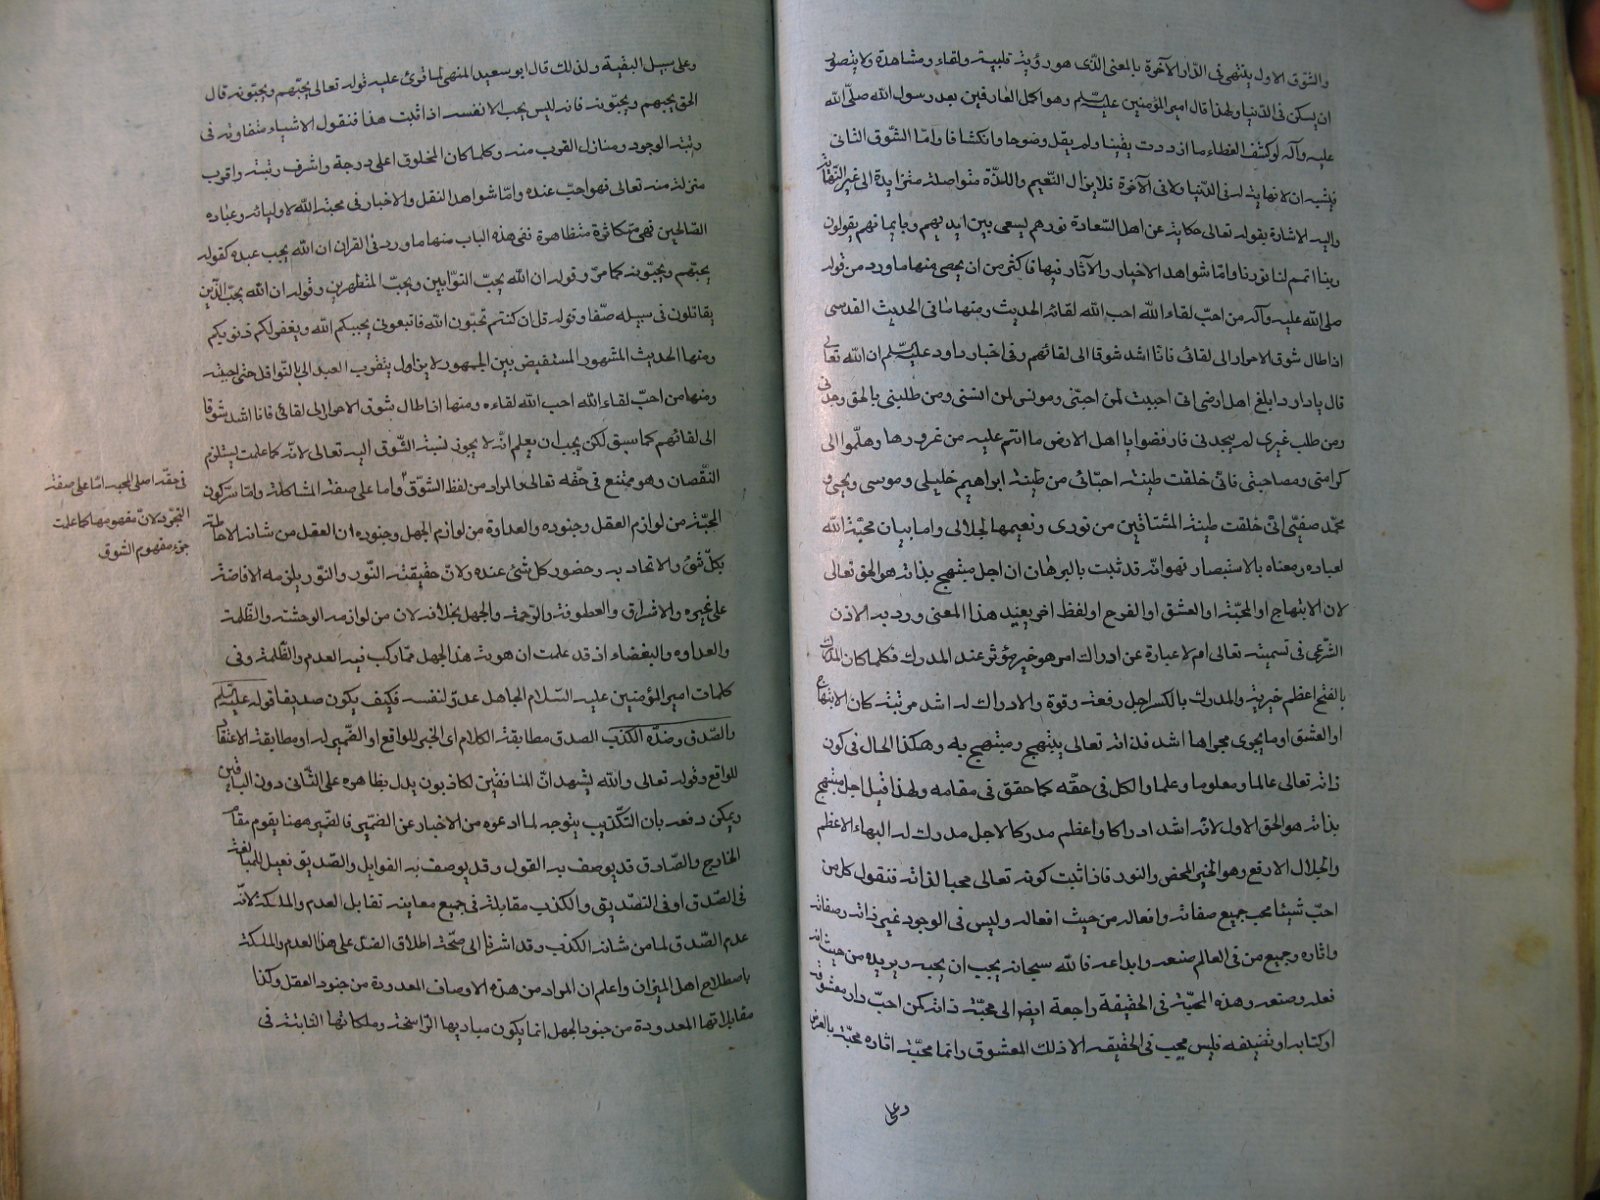 والشوق الاول ينتهى فى الدار الآخرة بالمعنى الذى هو رؤية قلبية ولقاء ومشاهدة ولا يتصور
ان يسكن فى الدنيا ولهذا قال امير المؤمنين عليه السلم وهو اكمل العارفين بعد رسول الله صلى الله
عليه وآله لو كشف الغطاء ما ازددت يقينا ولم يقل وضوحا وانكشافا واما الشوق الثانى
فيشبه ان لا نهاية له فى الدنيا ولا فى الآخرة فلا يزال النعيم واللذة متواصلة متزايدة الى غير النهاية
واليه الاشارة بقوله تعالى حكاية عن اهل السعادة نورهم يسعى بين ايديهم وبايمانهم يقولون
ربنا اتمم لنا نورنا واما شواهد الاخبار والآثار فيها فاكثر من ان يحصى منها ما ورد من قوله
صلى الله عليه وآله من احب لقاء الله احب الله لقائه الحديث ومنها ما فى الحديث القدسى
اذا طال شوق الاحرار الى لقائى فانا اشد شوقا الى لقائهم وفى اخبار داود عليه السلم ان الله تعالى
قال يا داود ابلغ اهل ارضى انى احببت لمن احبنى ومونس لمن انسنى ومن طلبنى بالحق وجدنى
ومن طلب غيرى لم يجدنى فارفضوا يا اهل الارض ما انتم عليه من غرورها وهلموا الى
كرامتى ومصاحبتى فانى خلقت طينة احبائى من طينة ابراهيم خليلى وموسى ونجيى و
محمد صفيى انى خلقت طينة المشتاقين من نورى ونعيمها لجلالى واما بيان محبة الله
لعباده ومعناه بالاستبصار فهو انه قد ثبت بالبرهان ان اجل مبتهج بذاته هو الحق تعالى
لان الابتهاج او المحبة او العشق او الفرح او لفظ اخر يفيد هذا المعنى ورد به الاذن
الشرعى فى تسميته تعالى ام لا عبارة عن ادراك امر هو خير مؤثر عند المدرك فكلما كان المدرك
بالفتح اعظم خيرية والمدرك بالكسر اجل رفعة وقوة والادراك له اشد مرتبة كان الابتهاج
او العشق او ما يجرى مجراها اشد فذاته تعالى يبتهج ومبتهج به وهكذا الحال فى كون
ذاته تعالى عالما ومعلوما وعلما والكل فى حقه كما حقق فى مقامه ولهذا قيل اجل مبتهج
بذاته هو الحق الاول لانه اشد ادراكا واعظم مدركا لاجل مدرك له البهاء الاعظم
والجلال الارفع وهو الخير المحض والنور فاذا ثبت كونه تعالى محبا لذاته فنقول كل من
احب شيئا محب جميع صفاته وافعاله من حيث افعاله وليس فى الوجود غير ذاته وصفاته
واثاره وجميع من فى العالم صنعه وابداعه فالله سبحانه يجب ان يحبه ويريده من حيث انه
فعله وصنعه وهذه المحبة فى الحقيقة راجعة ايض الى محبة ذاته كمن احب دار معشوقه
او كتابه او تصنيفه فليس محب فى الحقيقه الا ذلك المعشوق وانما محبة اثاره محبة بالعرض
وعلى
وعلى سبيل البقية ولذلك قال ابو سعيد المنهى لما قرئ عليه قوله تعالى يحبهم ويحبونه قال
الحق يحبهم ويحبونه فانه ليس يحب الا نفسه اذا ثبت هذا فنقول الاشياء متفاوته فى
رتبة الوجود ومنازل القرب منه وكلما كان المخلوق اعلى درجة واشرف رتبة واقرب
منزلة منه تعالى فهو احب عنده واما شواهد النقل والاخبار فى محبة الله لاوليائه وعباده
الصالحين فهى متكاثرة متظاهرة ففى هذه الباب منها ما ورد فى القران ان الله يحب عبده كقوله
يحبهم ويحبونه كما مر وقوله ان الله يحب التوابين ويحب المتطهرين وقوله ان الله يحب الذين
يقاتلون فى سبيله صفا وقوله قل ان كنتم تحبون الله فاتبعونى يحببكم الله ويغفر لكم ذنوبكم
ومنها الحديث المشهور المستفيض بين الجمهور لا يزاول يتقرب العبد الى بالنوافل حتى احبه
ومنها من احب لقاء الله احب الله لقاءه ومنها اذا طال شوق الاحرار الى لقائى فانا اشد شوقا
الى لقائهم كما سبق لكن يجب ان يعلم انه لا يجوز نسبة الشوق اليه تعالى لانه كما علمت يستلزم
النقصان وهو ممتنع فى حقه تعالى والمراد من لفظ الشوق واما على صفة المشاكلة واما سر كون
المحبة من لوازم العقل وجنوده والعداوة من لوازم الجهل وجنوده ان العقل من شانه الاحاطة
بكل شئ والاتحاد به وحضور كل شئ عنده ولان حقيقته النور والنور يلزمه الافاضة
على غيره والاشراق والعطوفة والرحمة والجهل بخلافه لان من لوازمه الوحشة والظلمة
والعداوه والبغضاء اذ قد علمت ان هوية هذا الجهل مما ركب فيه العدم والظلمة وفى
كلمات امير المؤمنين عليه السلام الجاهل عدو لنفسه فكيف يكون صديقا قوله عليه السلم
والصدق وضده الكذب الصدق مطابقة الكلام اى الخبر للواقع او الضمير له او مطابقة الاعتقاد
للواقع وقوله تعالى والله يشهد ان المنافقين لكاذبون يدل بظاهره على الثانى دون الباقين
ويمكن دفعه بان التكذيب يتوجه لما ادعوه من الاخبار عن الضمير فالضمير ههنا يقوم مقام
الخارج والصادق قد يوصف به القول وقد يوصف به القوابل والصديق فعيل للمبالغة
فى الصدق او فى التصديق والكذب مقابلة فى جميع معاينه تقابل العدم والملكة لانه
عدم الصدق لما من شانه الكذب وقد اشرنا الى صحة اطلاق الضد على هذا العدم والملكة
باصطلاح اهل الميزان واعلم ان المراد من هذه الاوصاف المعدودة من جنود العقل وكذا
مقابلاتها المعدودة من جنود الجهل انما يكون مباديها الراسخة وملكاتها الثابتة فى
فى حقه اصلى المحبه اما على صفة
التجرد لان مفهومها كما علمت
جزء مفهوم الشوق